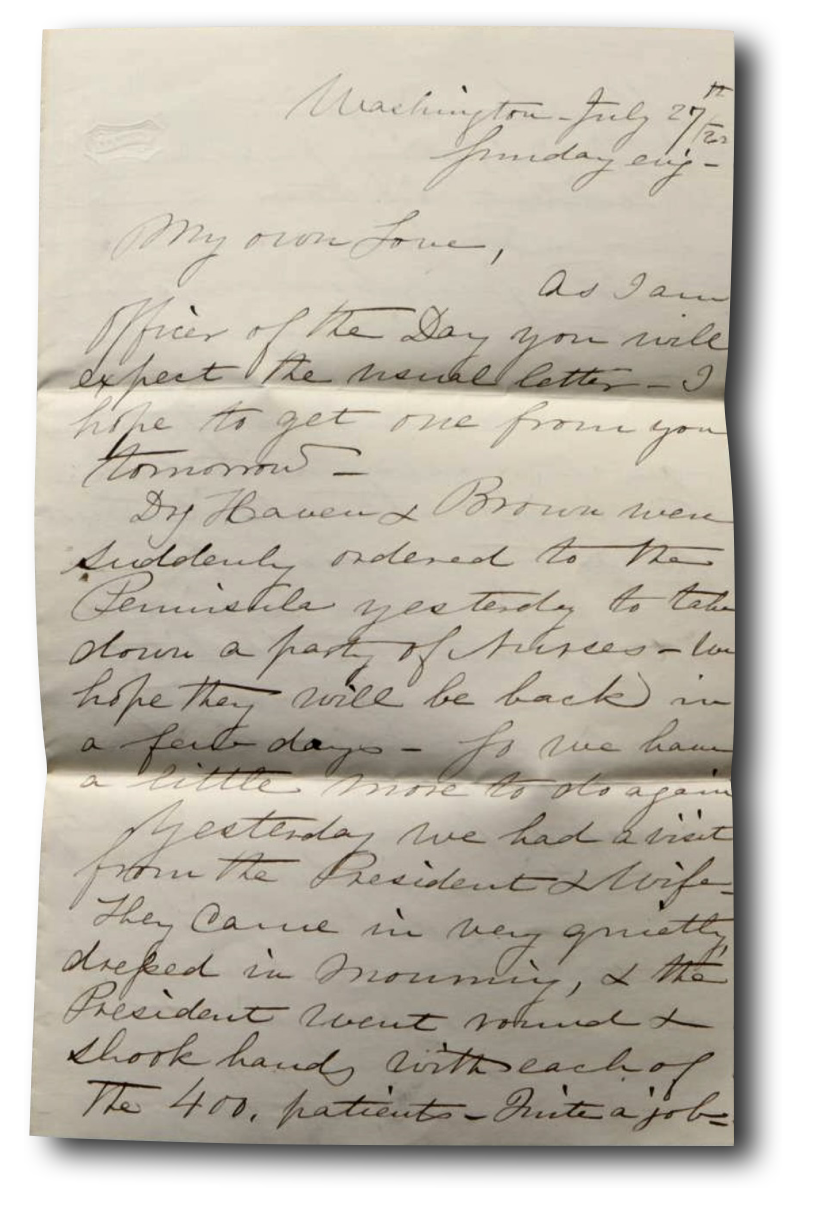 Washington - July 27th/62
Sunday evg -
My own Love,
As I am
Officer of the Day you will
expect the usual letter - I
hope to get one from you
tomorrow -
Drs Haven & Brown were
suddenly ordered to the
Peninsula yesterday to take
down a party of Nurses - We
hope they will be back in
a few days - So we have
a little more to do again
Yesterday we had a visit
from the President & Wife -
They came in very quietly,
dressed in mourning, & the
President went round &
shook hands with each of
the 400. patients - Quite a job -